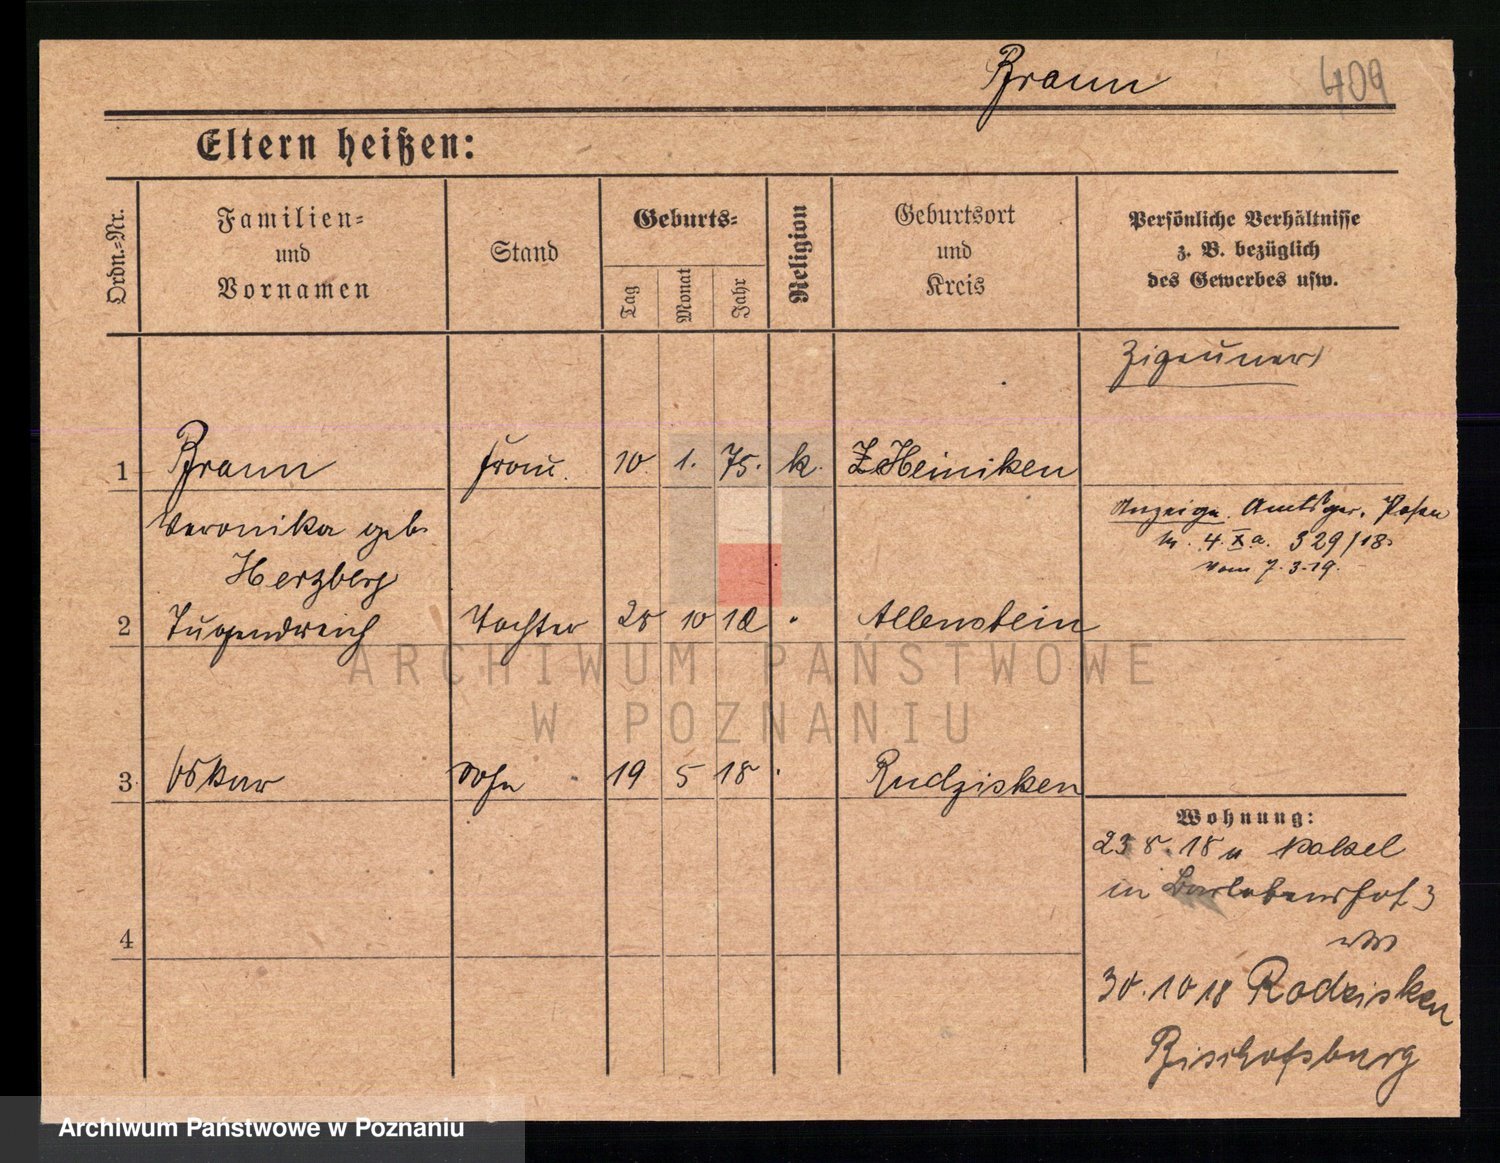 Braun
409
Eltern heißen:
Ordn.=Nr.
Familien=
und
Vornamen
Stand
Geburts=
Tag
Monat
Jahr
Religion
Geburtsort
und
Kreis
Persönliche Verhältnisse
z. B. bezüglich
des Gewerbes usw.
Zigeuner
1 Braun Frau. 10. 1. 75. k. Heiniken
Veronika geb.
Herzberg
Anzeige Amtsger. Posen
4. X a. 329/18.
vom 7.3.19.
2 Tugendreich Tochter 28 10 12 Allenstein
3 Oskar Sohn 19 5 18 Rudzisken
Wohnung:
23 8. 18 Nakel
in
4
30. 10 18 Rodzisken
Bischofsburg
ARCHIWUM PAŃSTWOWE
W POZNANIU
Archiwum Państwowe w Poznaniu